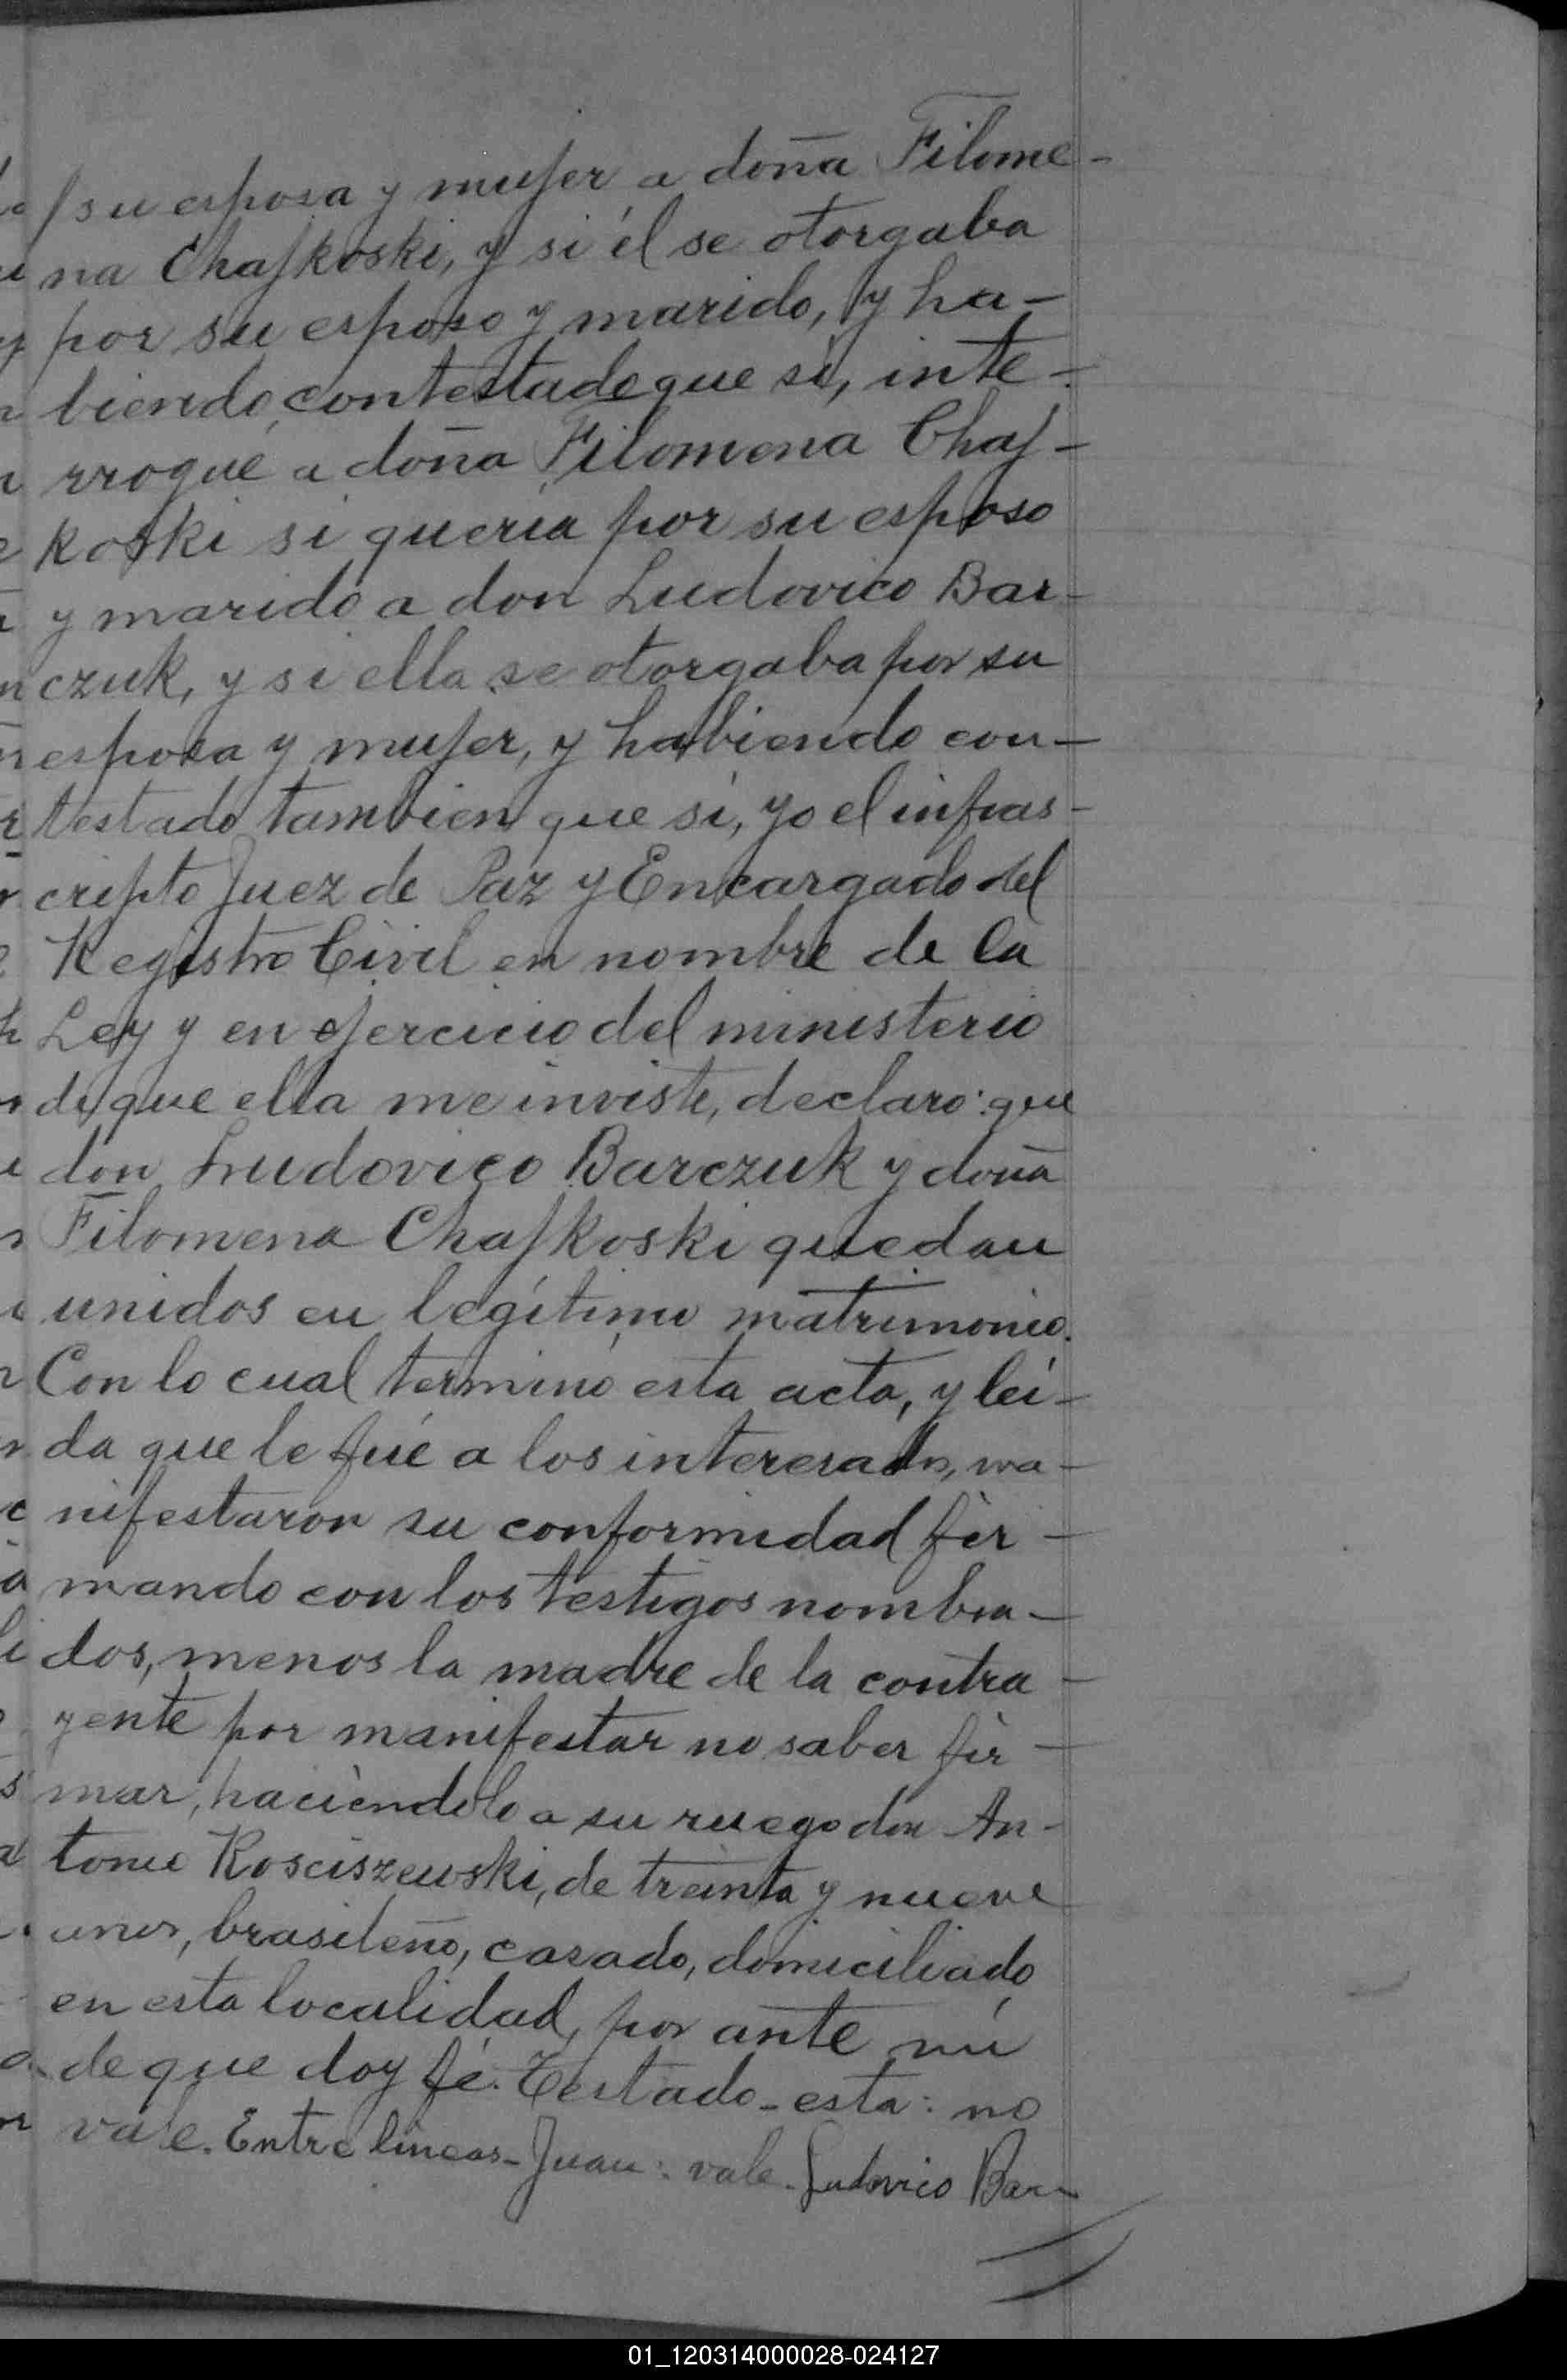 /su esposa y mujer a doña Filome-
na Chajkoski, y si él se otorgaba
por su esposo y marido, y ha-
biendo contestado que si, inte-
rrogué a doña Filomena Chaj-
koski si quería por su esposo
y marido a don Ludovico Bar-
czuk, y si ella se otorgaba por su
esposa y mujer, y habiendo con-
testado tambien que si, yo el infras-
cripto Juez de Paz y Encargado del
Registro Civil en nombre de la
Ley y en ejercicio del ministerio
de que ella me inviste, declaro: que
don Ludovico Barczuk y doña
Filomena Chajkoski quedan
unidos en legítimo matrimonio.
Con lo cual terminó esta acta, y leí-
da que le fué a los interesados, ma-
nifestaron su conformidad fir-
mando con los testigos nombra-
dos, menos la madre de la contra-
yente por manifestar no saber fir-
mar, haciéndolo a su ruego don An-
tonio Rosciszewski, de treinta y nueve
anos, brasileño, casado, domiciliado
en esta localidad, por ante mí
de que doy fé. Testado-esta: no
vale. Entre líneas-Juan: vale. Ludovico Bar
01_120314000028-024127